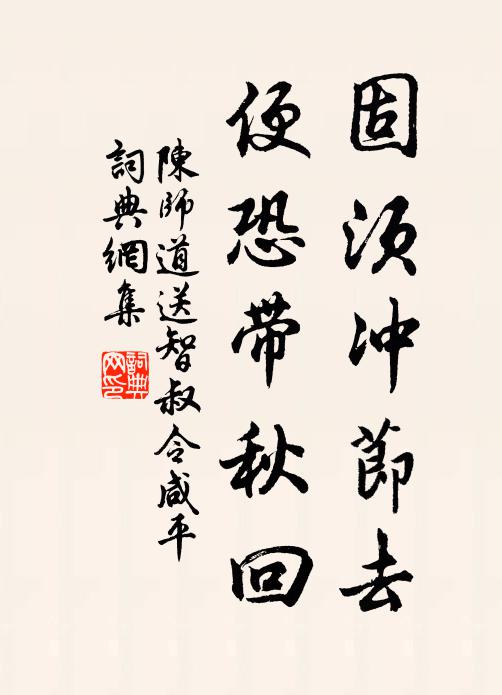 固须冲節去
便恐帶秋回
陳師道送智叔令咸平
詞典網集
詞典网印